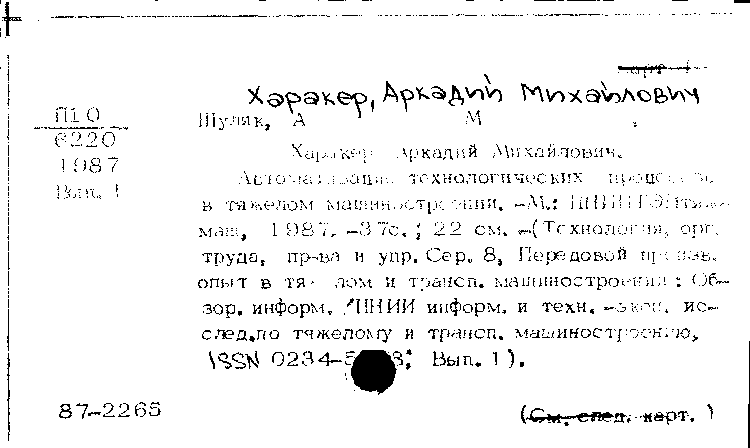 Харакер, Аркадий Михайлович
П10
6220
1987
Вып. 1
Шуляк, А М
Харакер Аркадий Михайлович.
технологических
в тяжелом машиностроении. -М.:
маш, 1987. -37с.; 22 см. -(Технология, орг.
труда, пр-ва и упр. Сер. 8, Передовой произв.
опыт в тя лом и трансп. машиностроении : Об-
зор. информ. /ЦНИИ информ. и техн. -экон. ис-
след.по тяжелому и трансп. машиностроению,
ISSN 0234- 8; Вып. 1).
87-2265
(См. след. карт. )